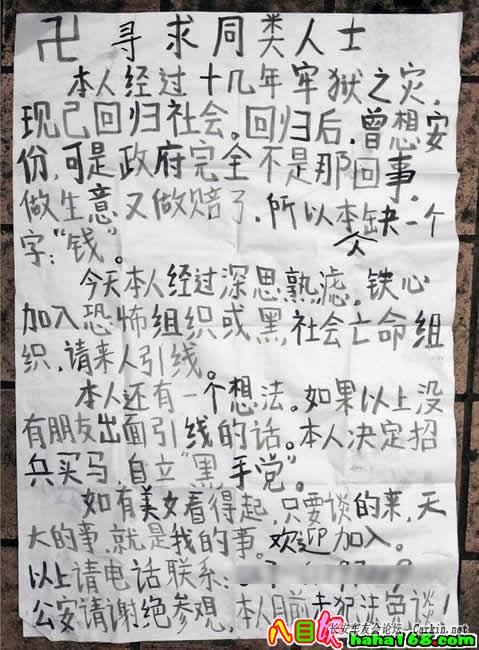 卍 寻求同类人士
本人经过十几年牢狱之灾,
现已回归社会。回归后,曾想安
份,可是政府完全不是那回事。
做生意又做赔了,所以本缺一个
人
字:“钱”。
今天本人经过深思熟滤,铁心
加入恐怖组织或黑社会亡命组
织,请来人引线。
本人还有一个想法。如果以上没
有朋友出面引线的话。本人决定招
兵买马,自立“黑手党”。
如有美女看得起,只要谈的来,天
大的事,就是我的事。欢迎加入。
以上请电话联系:
公安请谢绝参观,本人目前未犯法免谈!
长安车友会论坛 Carkin.net
八目妖
haha168.com